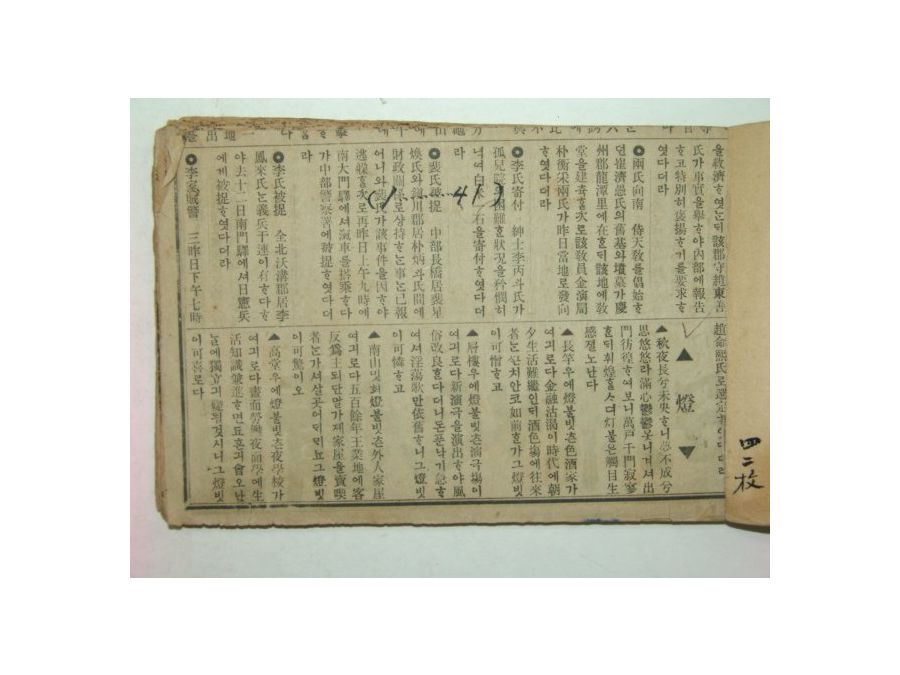 을救濟ᄒᆞ엿ᄂᆞᆫ되該郡守趙東善
氏가事實을擧ᄒᆞ야內部에報告
ᄒᆞ고特別히褒揚ᄒᆞ기를要求ᄒᆞ
엿다더라
◉兩氏向南 侍天敎를倡始ᄒᆞ
던崔濟愚氏의舊基와墳墓가慶
州郡龍潭里에在ᄒᆞᆫ되該地에敎
堂을建築ᄒᆞᆯ次로該敎員金演局
朴衡采兩氏가昨日當地로發向
ᄒᆞ엿다더라
◉李氏寄付 紳士李丙斗氏가
孤兒院의困難ᄒᆞᆫ狀況을矜憫히
녁여白米一石을寄付ᄒᆞ엿다더
라
◉裴氏被捉 中部長橋居裴星
煥氏와 川郡居朴炳 氏間에
財政關係로相持ᄒᆞᄂᆞᆫ事ᄂᆞᆫ已報
어니와裴氏가該事件을因ᄒᆞ야
逃躱ᄒᆞᆯ次로再昨日上午九時에
南大門驛에셔滊車를搭乘ᄒᆞ다
가中部警察署에被捉ᄒᆞ엿다더
라
◉李氏被捉 全北沃溝郡居李
鳳來氏ᄂᆞᆫ義兵干連이有ᄒᆞ다ᄒᆞ
야去十二日南門驛에셔日憲兵
에게被捉ᄒᆞ엿다더라
◉李家賊警 三昨日下午七時
趙命熙氏로選定
▲燈▼
▲秋夜長兮未央ᄒᆞ니夢不成兮
思悠悠라滿心鬱鬱못니겨셔出
門彷徨ᄒᆞ여보니萬戶千門寂寥
ᄒᆞᆫ되휘煌ᄒᆞᆯᄉᆞ뎌灯불은觸目生
感졀노난다
▲長竿우에燈불빗츤色酒家가
여긔로다金融沽渴이時代에朝
夕生活難繼人된酒色塲에往來
者ᄂᆞᆫᄭᅳᆫ치안코如前ᄒᆞᆫ가그燈빗
이可憎ᄒᆞ고
▲層樓우에燈불빗츤演극塲이
여긔로다新演극을演出ᄒᆞ야風
俗改良ᄒᆞᆫ다더니돈푼낙기急ᄒᆞ
여셔淫蕩歌만依舊ᄒᆞ니그燈빗
이可憐ᄒᆞ고
▲南山밋헤燈불빗츤外人家屋
여긔로다五百餘年王業地에客
反爲主되단말가제家屋을賣喫
者ᄂᆞᆫ가셔살곳어듸멘뇨그燈빗
이可驚이오
▲高堂우에燈불빗츤夜學校가
여긔로다晝而勞働夜而學에生
活知識兼進ᄒᆞ면됴흔긔會오난
날에獨立긔礎될것시니그燈빗
이可喜로다
四二枚